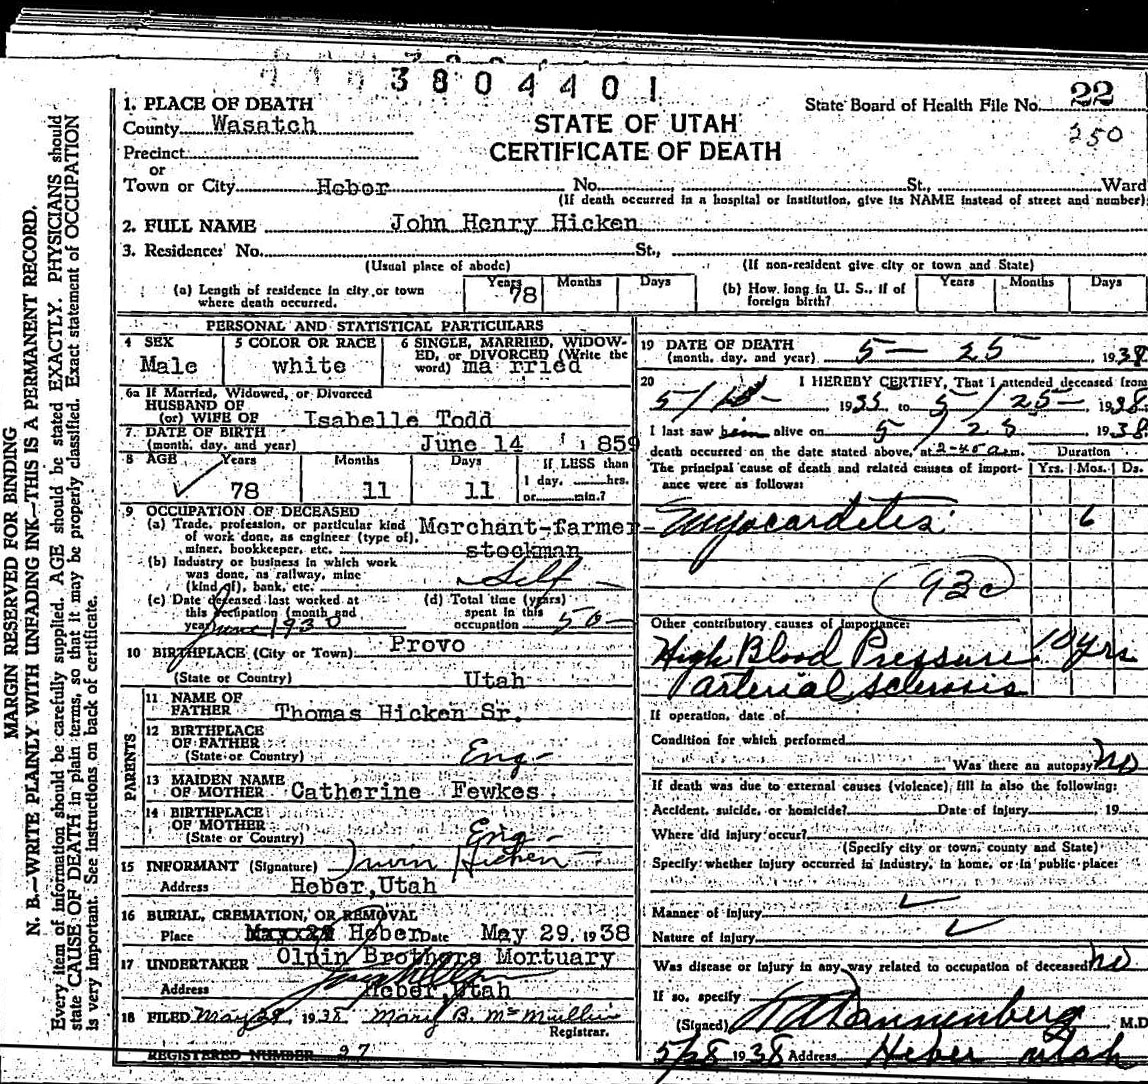 3804401
State Board of Health File No. 22
250
1. PLACE OF DEATH
County Wasatch
STATE OF UTAH
CERTIFICATE OF DEATH
Precinct
or
Town or City Heber No. St., Ward
(If death occurred in a hospital or institution, give its NAME instead of street and number)
2. FULL NAME John Henry Hicken
3. Residence: No. St.,
(Usual place of abode) (If non-resident give city or town and State)
(a) Length of residence in city or town where death occurred. Years 78 Months Days
(b) How long in U. S., if of foreign birth? Years Months Days
PERSONAL AND STATISTICAL PARTICULARS
4 SEX
Male
5 COLOR OR RACE
white
6 SINGLE, MARRIED, WIDOW-
ED, or DIVORCED (Write the
word) ma rried
6a If Married, Widowed, or Divorced
HUSBAND OF
(or) WIFE OF Isabelle Todd
7 DATE OF BIRTH
(month, day, and year) June 14 1859
8 AGE Years Months Days If LESS than
78 11 11 1 day, hrs.
or min.?
9 OCCUPATION OF DECEASED
(a) Trade, profession, or particular kind
of work done, as engineer (type of),
miner, bookkeeper, etc.
Merchant-farmer-
stockman
(b) Industry or business in which work
was done, as railway, mine
(kind of), bank, etc. Self
(c) Date deceased last worked at
this occupation (month and
year) June 1930
(d) Total time (years)
spent in this
occupation 50
10 BIRTHPLACE (City or Town) Provo
(State or Country) Utah
PARENTS
11 NAME OF
FATHER Thomas Hicken Sr.
12 BIRTHPLACE
OF FATHER
(State or Country) Eng-
13 MAIDEN NAME
OF MOTHER Catherine Fewkes
14 BIRTHPLACE
OF MOTHER
(State or Country) Eng-
15 INFORMANT (Signature) Irwin Hicken
Address Heber, Utah
16 BURIAL, CREMATION, OR REMOVAL
Place Heber Date May 29, 1938
17 UNDERTAKER Olpin Brothers Mortuary
Address Heber, Utah
18 FILED May 28 1938 Mary B. McMullin
Registrar.
REGISTERED NUMBER 27
19 DATE OF DEATH
(month, day, and year) 5- 25 1938
20 I HEREBY CERTIFY, That I attended deceased from
1935 to 5/25- 1938
I last saw him alive on 5/25 1938
death occurred on the date stated above, at 2-45 a.m.
Duration
The principal cause of death and related causes of import-
ance were as follows:
Yrs. Mos. Ds.
Myocarditis 6
93c
Other contributory causes of importance:
High Blood Pressure 10 yrs
arterial sclerosis
If operation, date of
Condition for which performed
Was there an autopsy no
If death was due to external causes (violence) fill in also the following:
Accident, suicide, or homicide? Date of injury 19
Where did injury occur?
(Specify city or town, county and State)
Specify whether injury occurred in industry, in home, or in public place:
Manner of injury
Nature of injury
Was disease or injury in any way related to occupation of deceased? no
If so, specify
(Signed) M.D.
5/28 1938 Address Heber Utah
MARGIN RESERVED FOR BINDING
N. B.—WRITE PLAINLY WITH UNFADING INK—THIS IS A PERMANENT RECORD.
Every item of information should be carefully supplied. AGE should be stated EXACTLY. PHYSICIANS should
state CAUSE OF DEATH in plain terms, so that it may be properly classified. Exact statement of OCCUPATION
is very important. See instructions on back of certificate.